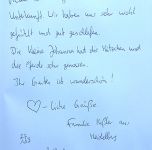 Unterkunft. Wir haben uns sehr wohl
gefühlt und gut geschlafen.
Die kleine Johanna hat die Kutschen und
die Pferde sehr genossen.
Ihr Garten ist wunderschön!
♡-liche Grüße
Familie aus
Heidelberg